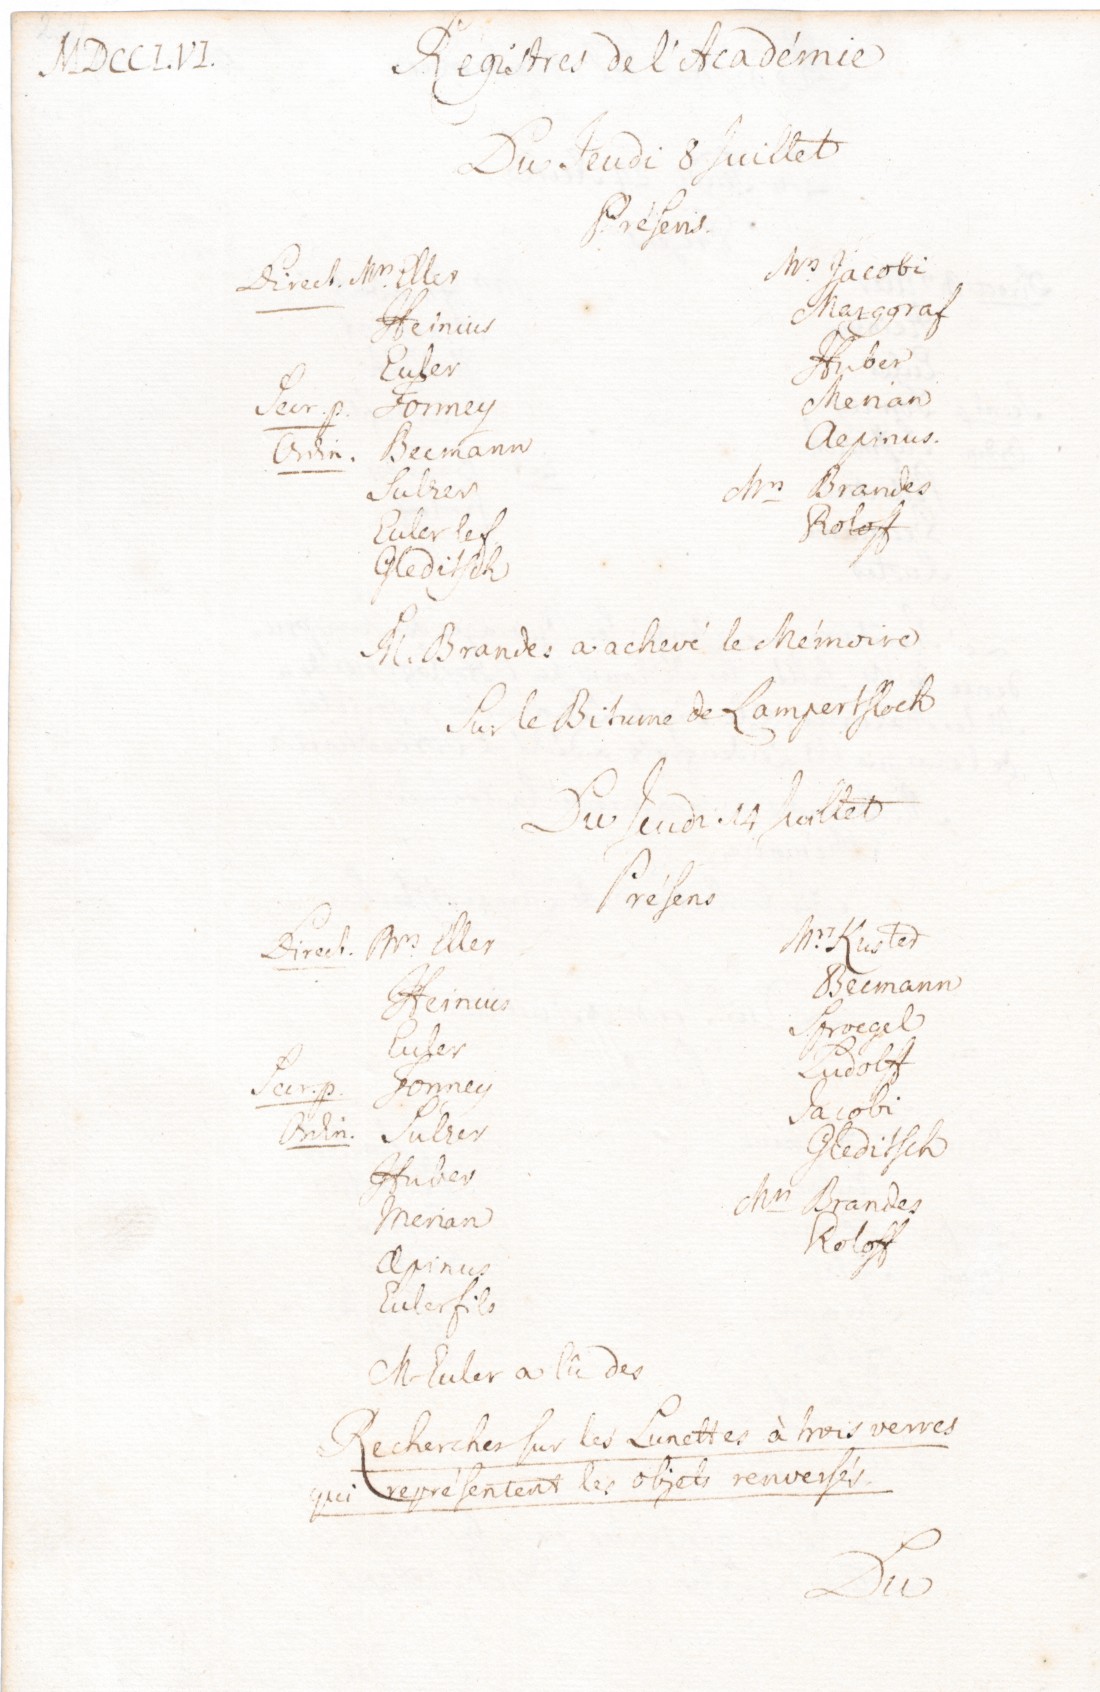 MDCCLVI.
Régistres de l'Académie
Du Jeudi 8 Juillet
Présens.
Direct. Mrs. Eller
Heinius
Euler
Secr. p. Formey
Ordin. Becmann
Sulzer
Euler le f.
Gleditsch
Mrs Jacobi
Marggraf
Huber
Merian
Aepinus.
Mrs Brandes
Roloff
M. Brandes a achevé le Mémoire
Sur le Bitume de Lampertsloch
Du Jeudi 14 Juillet
Présens
Direct. Mrs Eller
Heinius
Euler
Secr. p. Formey
Ordin. Sulzer
Huber
Merian
Æpinus
Euler fils
Mrs Kuster
Becmann
Sproegel
Ludolff
Jacobi
Gleditsch
Mrs Brandes
Roloff
M. Euler a lû des
Recherches sur les Lunettes à trois verres
qui représentent les objets renversés.
Du